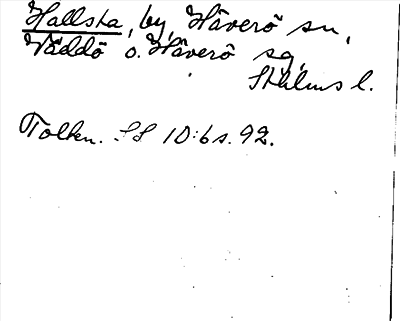 Hallsta, by, Häverö sn,
Väddö o. Häverö sg,
Sthlms l.
Tolken. SS 10:6 s. 92.